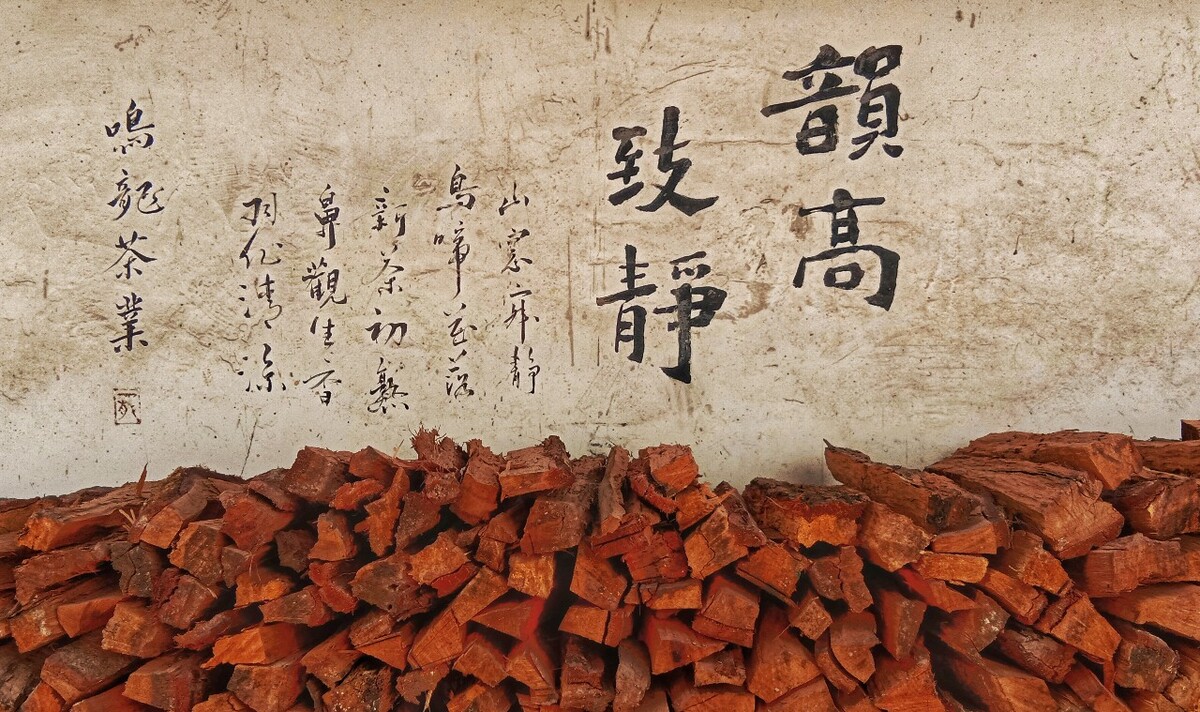 韻高
致靜
山窓寂靜
鳥啼花落
新茶初熟
鼻觀生香
羽化清涼
鳴龍茶業